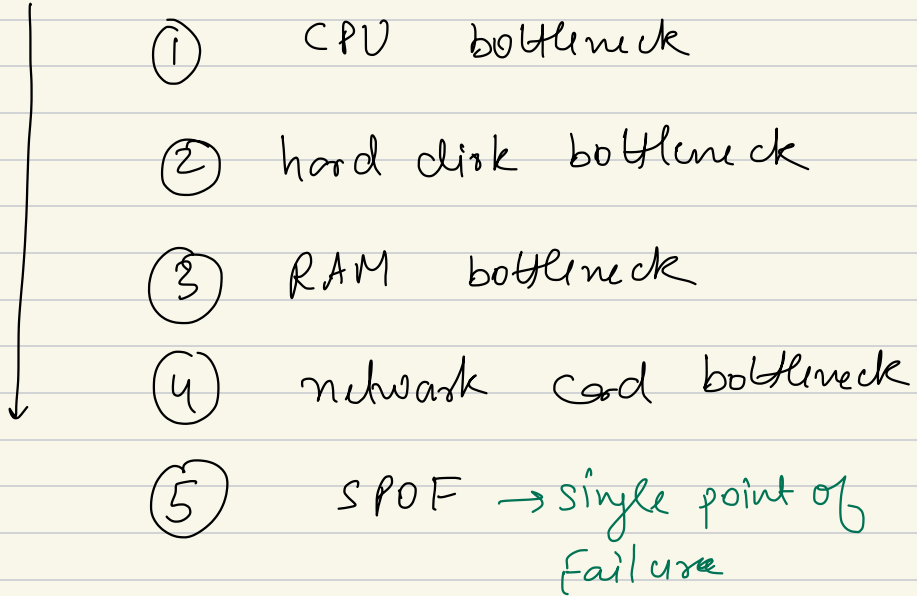 ① CPU bottleneck
② hard disk bottleneck
③ RAM bottleneck
④ network card bottleneck
⑤ SPOF → single point of
Failure